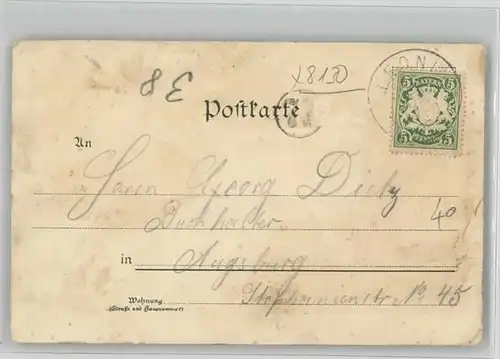 8E
x8130
Postkarte
BAYERN
5 5
5 PFENNIG 5
An
Herrn Georg Dietz
Buchhalter
40
in Augsburg
Wohnung
(Straße und Hausnummer)
Stephanienstr No 45